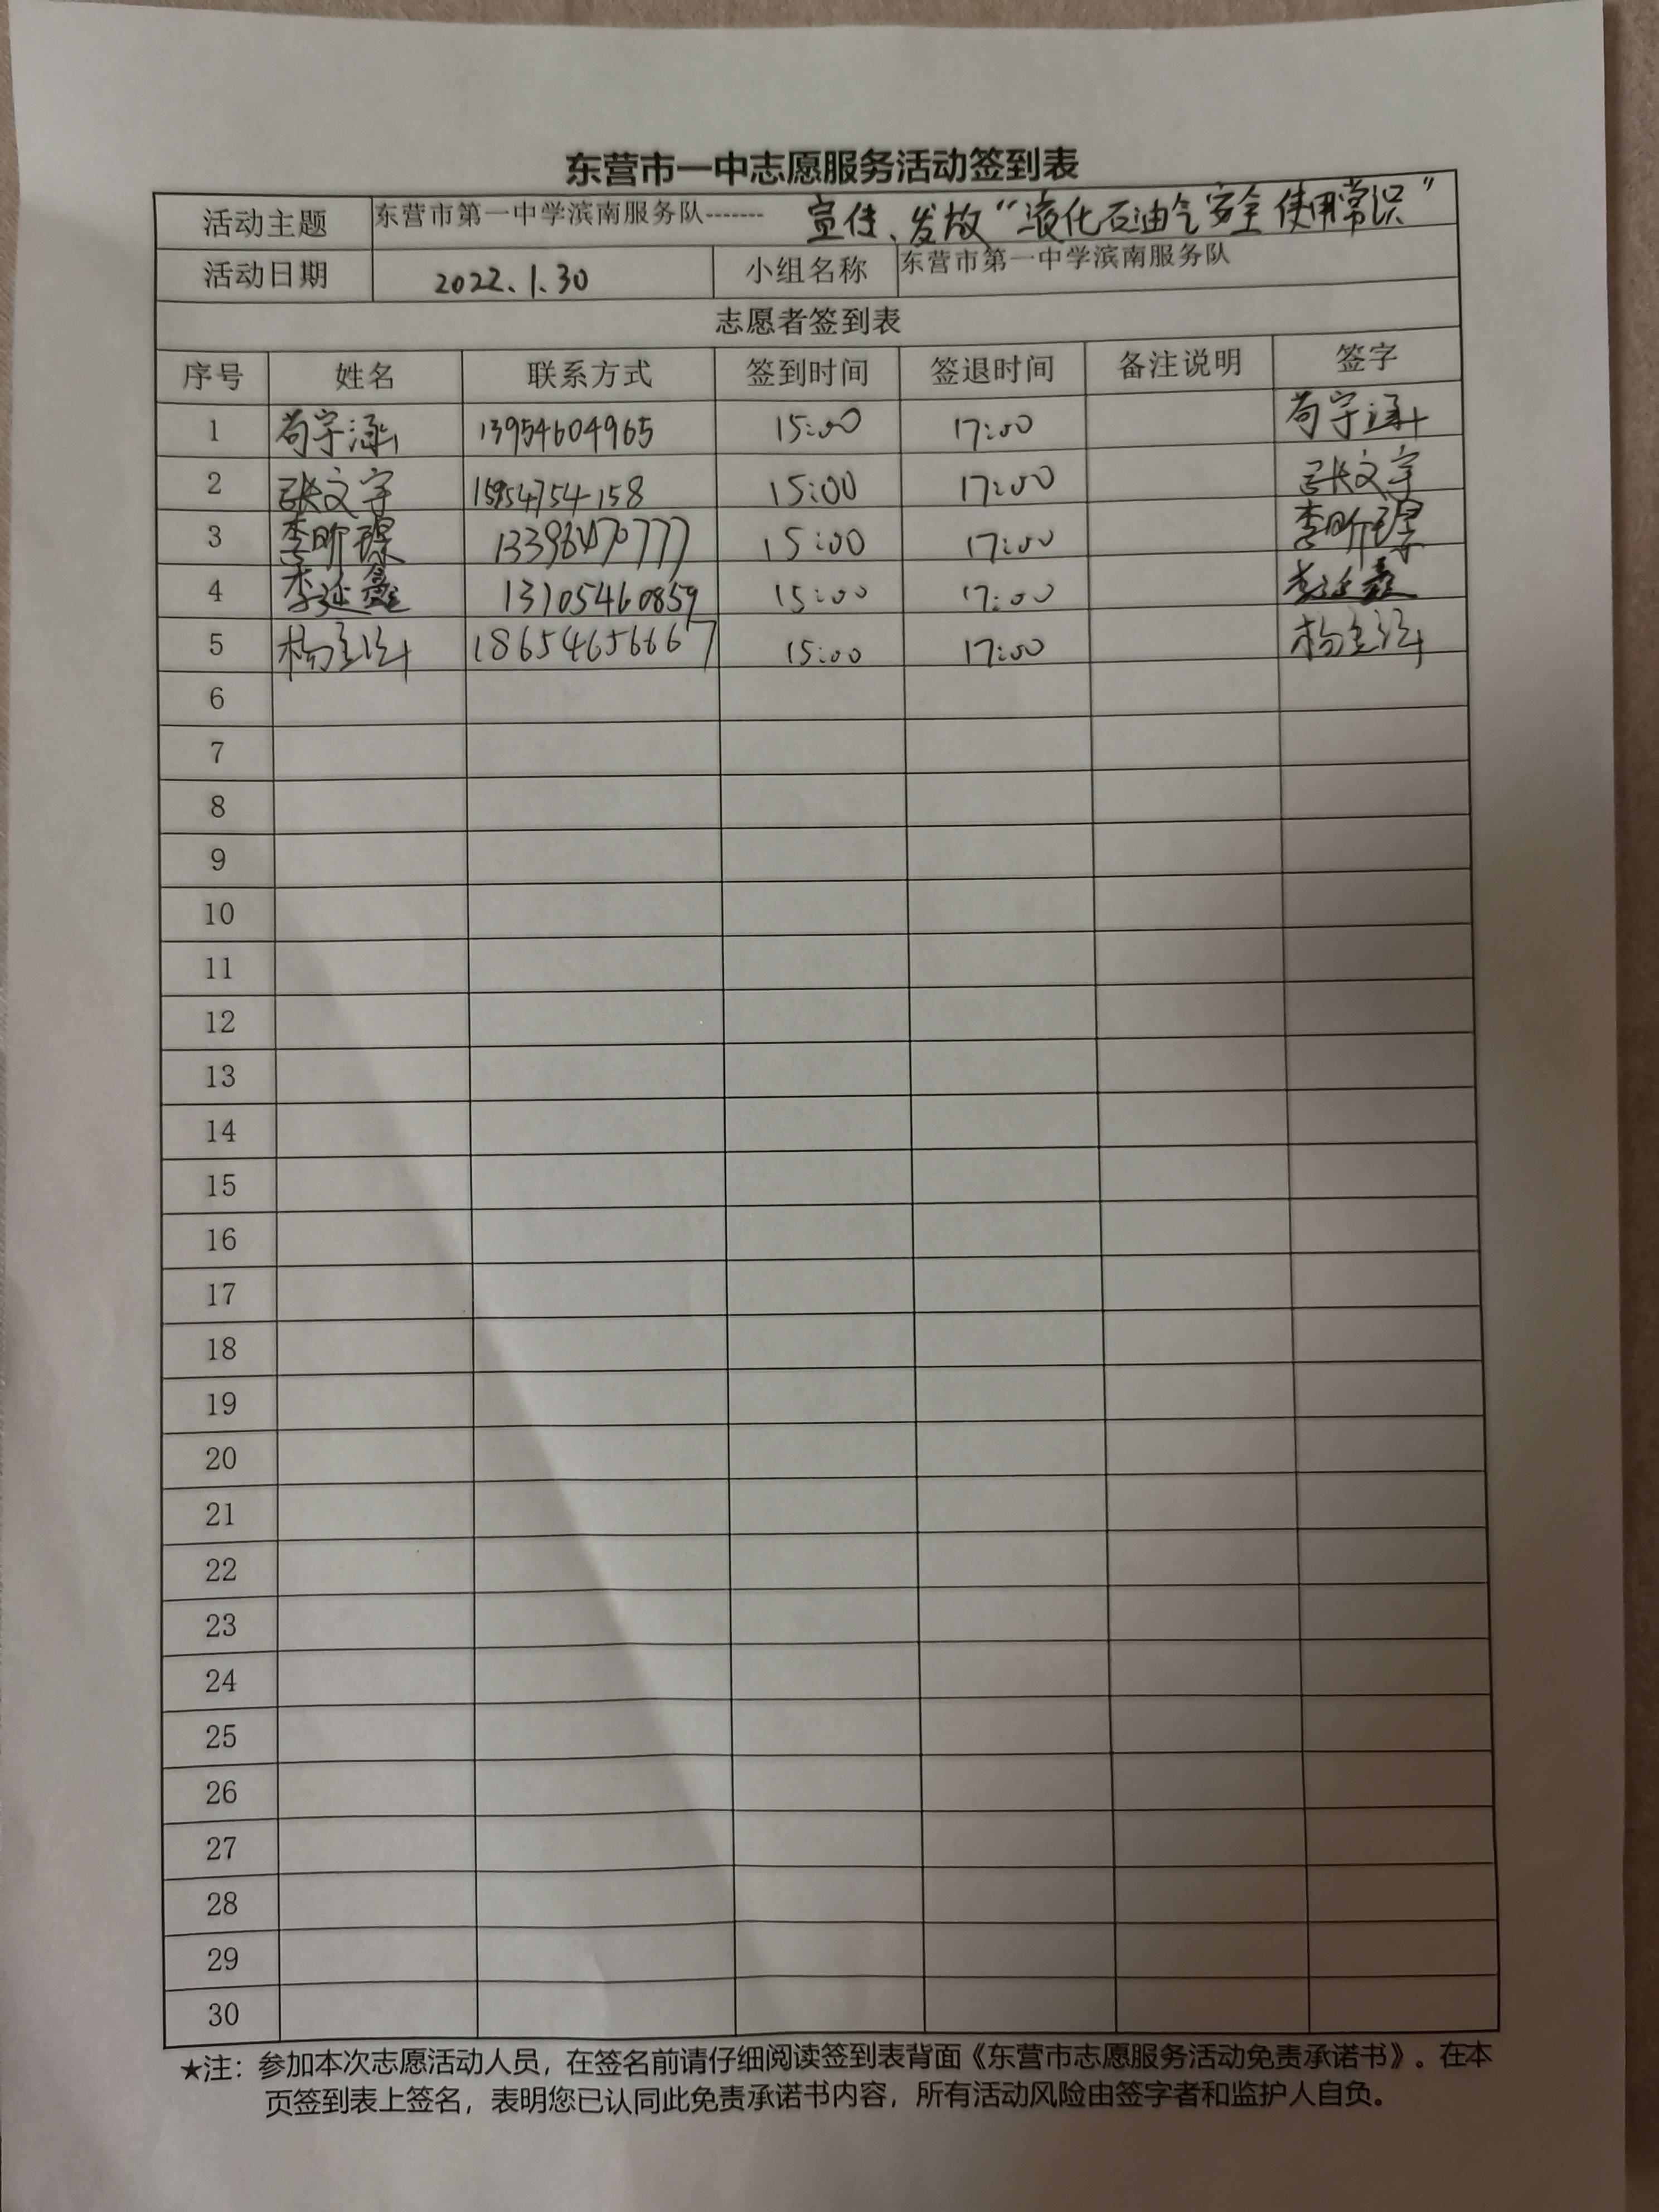 东营市一中志愿服务活动签到表
活动主题 东营市第一中学滨南服务队------- 宣传、发放“液化石油气安全使用常识”
活动日期 2022.1.30 小组名称 东营市第一中学滨南服务队
志愿者签到表
序号 姓名 联系方式 签到时间 签退时间 备注说明 签字
1 苟宇涵 13954604965 15:00 17:00 苟宇涵
2 张文宇 15954754158 15:00 17:00 张文宇
3 李昕 15:00 17:00 李昕
4 李延鑫 13105460859 15:00 17:00 李延鑫
5 18654656667 15:00 17:00
6
7
8
9
10
11
12
13
14
15
16
17
18
19
20
21
22
23
24
25
26
27
28
29
30
★注：参加本次志愿活动人员，在签名前请仔细阅读签到表背面《东营市志愿服务活动免责承诺书》。在本
页签到表上签名，表明您已认同此免责承诺书内容，所有活动风险由签字者和监护人自负。